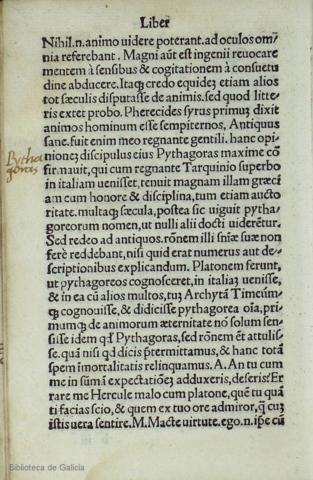 Liber
Nihil.n.animo uidere poterant.ad oculos om/
nia referebant. Magni aūt est ingenii reuocare
mentem à sensibus & cogitationem à consuetu
dine abducere.Itaq; credo equidē etiam alios
tot sæculis disputasse de animis.sed quod litte/
ris extet probo.Pherecides syrus primū dixit
animos hominum esse sempiternos, Antiquus
sane.fuit enim meo regnante gentili. hanc opi/
nionē discipulus eius Pythagoras maxime cō
Pytha
goras
fir.mauit,qui cum regnante Tarquinio superbo
in italiam uenisset, tenuit magnam illam græci
am cum honore & disciplina, tum etiam aucto
ritate. multaq; sæcula, postea sic uiguit pytha/
goreorum nomen,ut nulli alii docti uiderētur.
Sed redeo ad antiquos. rōnem illi sn̄iæ suæ non
ferè reddebant,nisi quid erat numerus aut de/
scriptionibus explicandum. Platonem ferunt,
ut pythagoreos cognosceret, in italiaȝ uenisse,
& in ea cū alios multos,tuȝ Archytā Timeūm/
q; cognouisse, & didicisse pythagorea oīa,pri/
mumq; de animorum æternitate nō solum sen/
sisse idem qđ Pythagoras, sed rōnem ēt attulis/
se. quā nisi qd dicis p̄termittamus, & hanc totā
spem īmortalitatis relinquamus. A. An tu cum
me in sūmā expectationē adduxeris,deseris?Er
rare me Hercule malo cum platone, quē tu quā
ti facias scio, & quem ex tuo ore admiror, q̄ cuȝ
istis uera sentire. M. Macte uirtute. ego.n.ip̄e cū
Biblioteca de Galicia